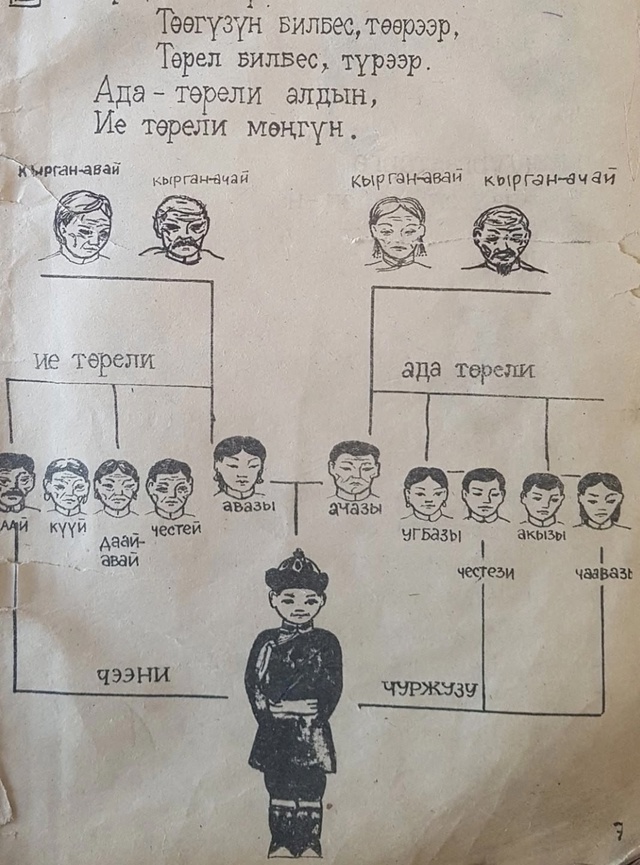 Төөгүзүн билбес, төөрээр,
Төрел билбес, түрээр.
Ада - төрели алдын,
Ие төрели мөңгүн.
кырган-авай кырган-ачай кырган-авай кырган-ачай
ие төрели ада төрели
авазы ачазы
даай күүй честей угбазы акызы
даай-авай
честези чаавазы
чээни чуржузу
7